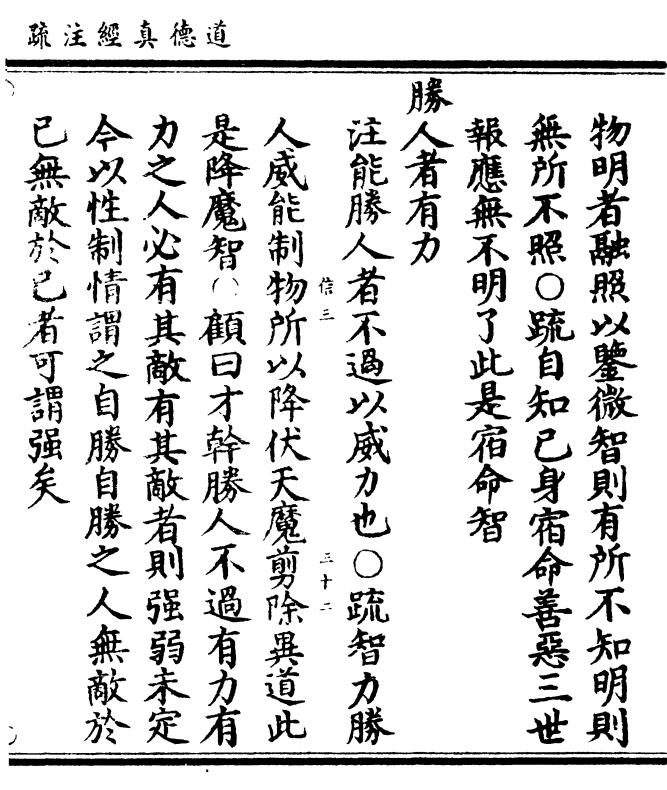 道德真經注疏
物明者融照以鑒微智則有所不知明則
無所不照○疏自知己身宿命善惡三世
報應無不明了此是宿命智
勝人者有力
注能勝人者不過以威力也○疏智力勝
人威能制物所以降伏天魔剪除異道此
信三
三十二
是降魔智○顧曰才幹勝人不過有力有
力之人必有其敵有其敵者則强弱未定
今以性制情謂之自勝自勝之人無敵於
已無敵於已者可謂强矣